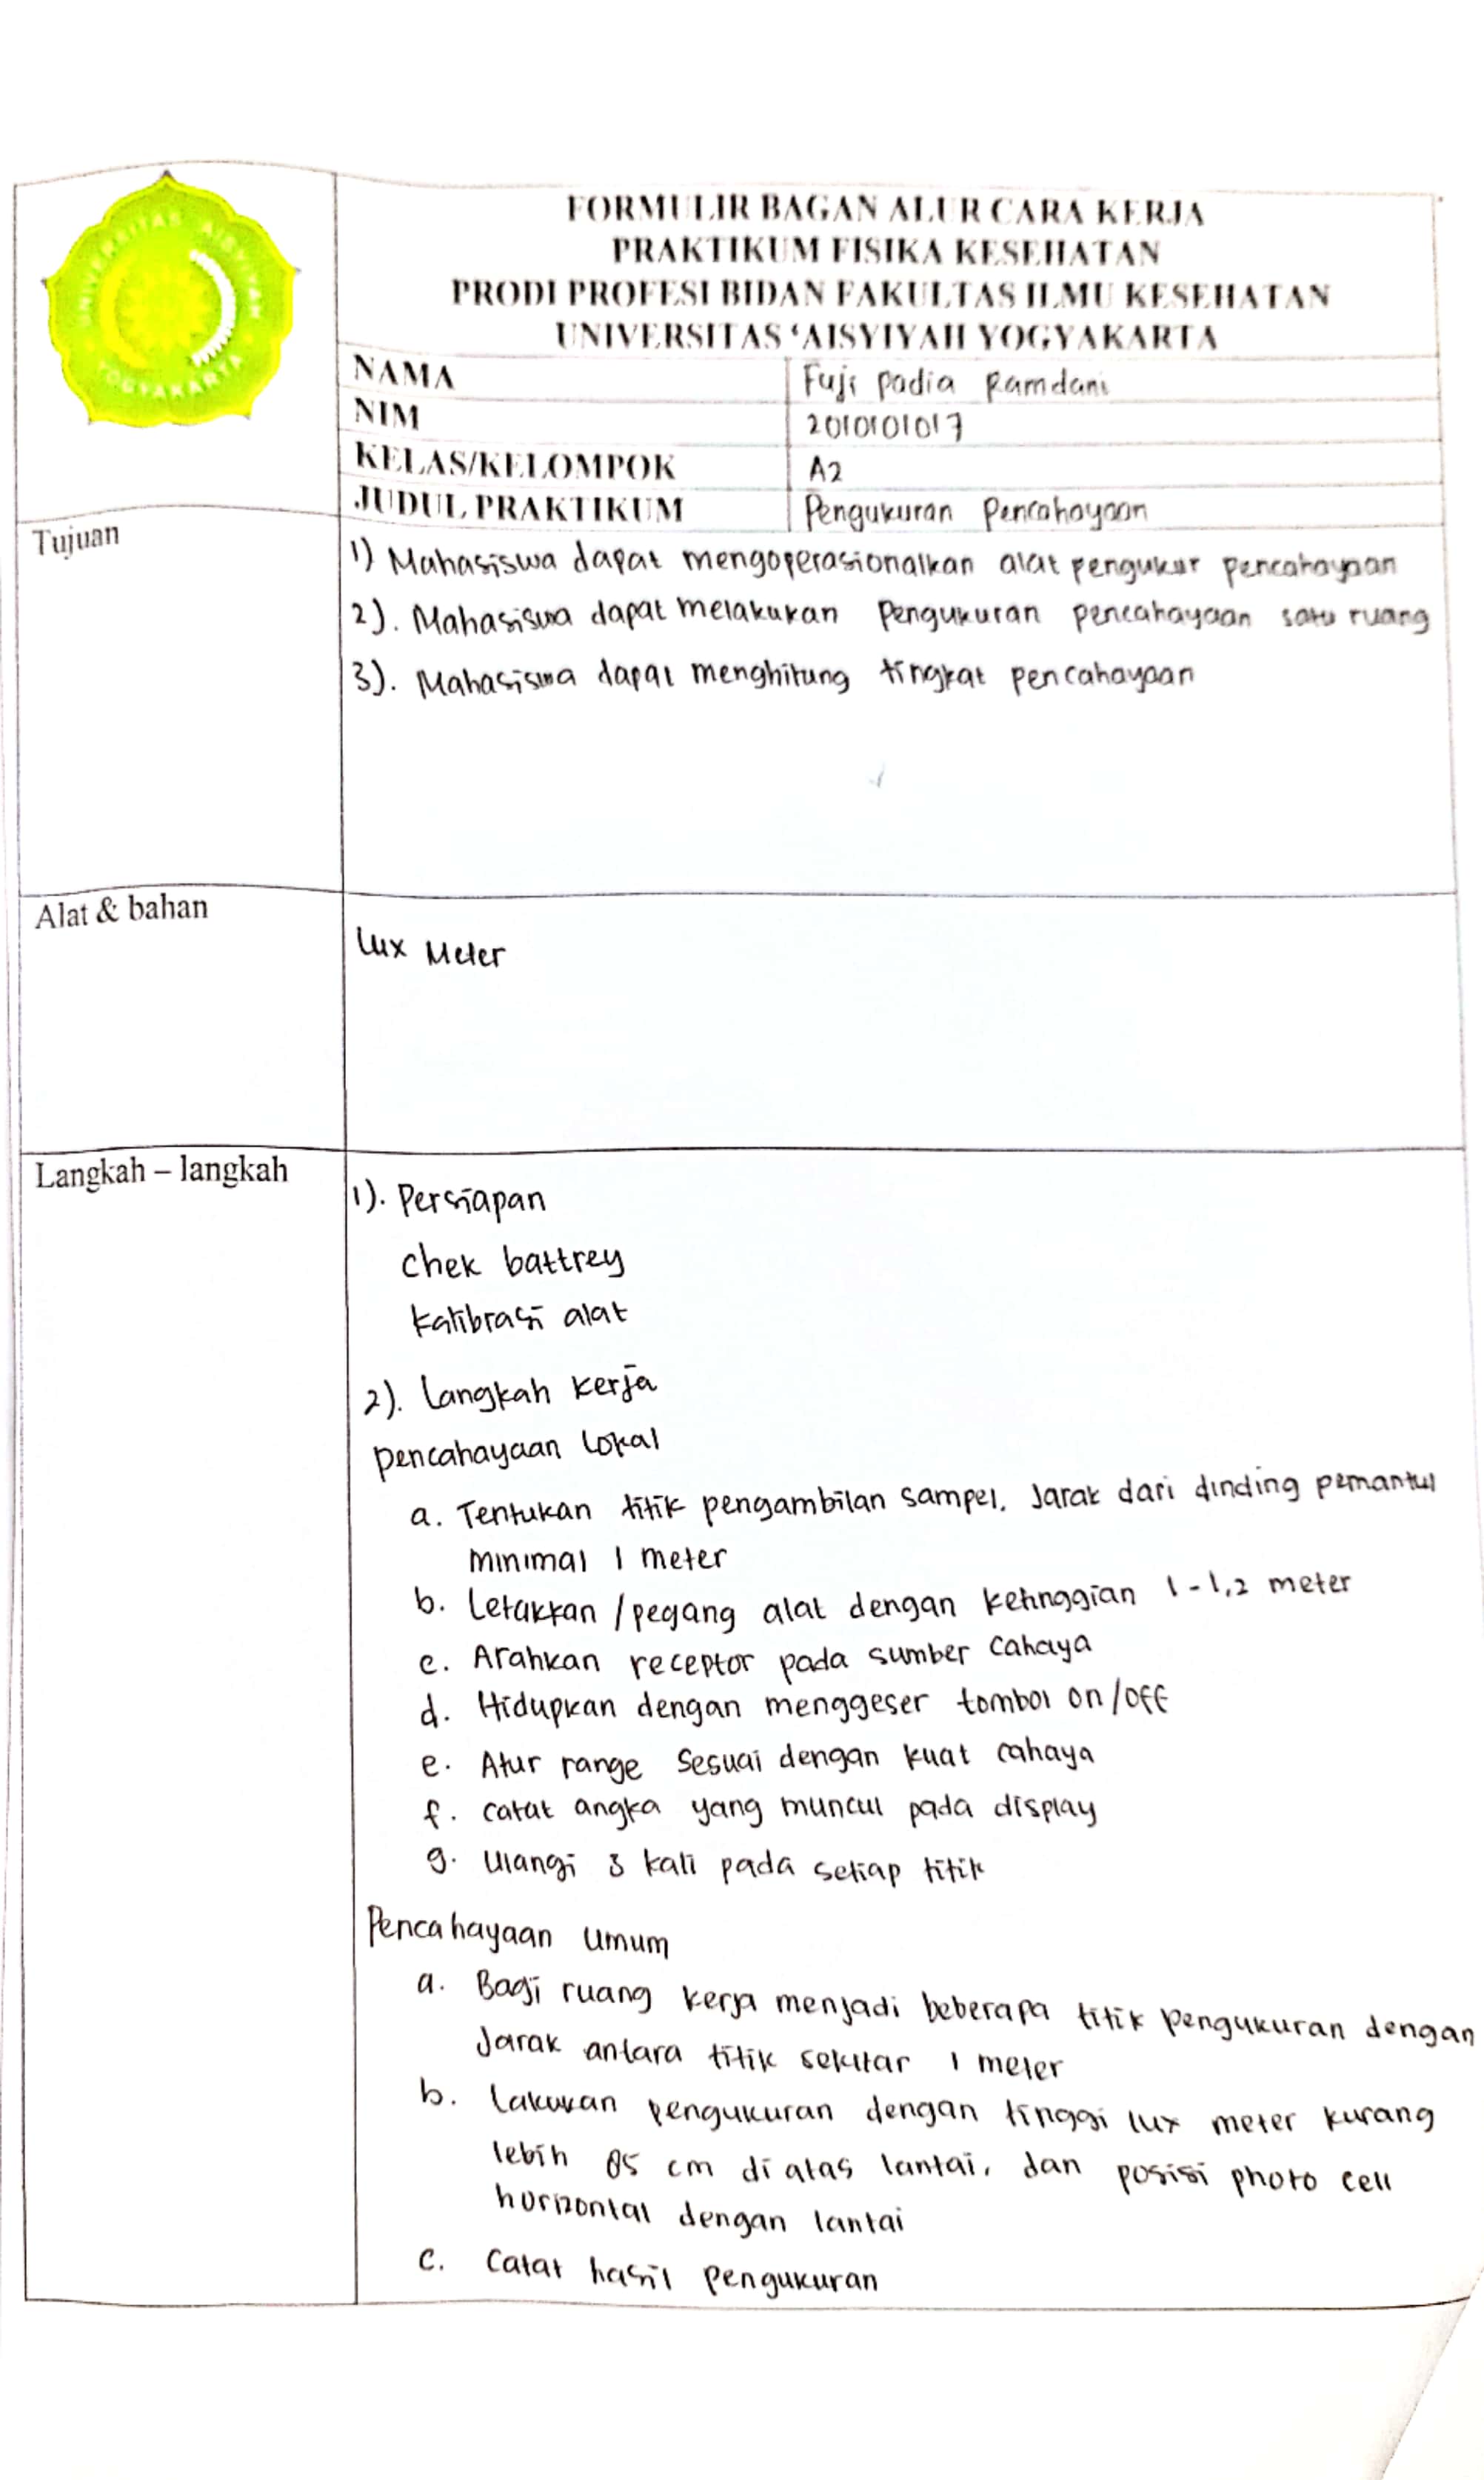 UNIVERSITAS 'AISYIYAH
YOGYAKARTA
FORMULIR BAGAN ALUR CARA KERJA
PRAKTIKUM FISIKA KESEHATAN
PRODI PROFESI BIDAN FAKULTAS ILMU KESEHATAN
UNIVERSITAS ‘AISYIYAH YOGYAKARTA
NAMA Fuji padia Ramdani
NIM 2010101017
KELAS/KELOMPOK A2
JUDUL PRAKTIKUM Pengukuran Pencahayaan
Tujuan
1) Mahasiswa dapat mengoperasionalkan alat pengukur pencahayaan
2). Mahasiswa dapat melakukan Pengukuran pencahayaan satu ruang
3). Mahasiswa dapat menghitung tingkat pencahayaan
Alat & bahan
Lux Meter
Langkah – langkah
1). Persiapan
chek battrey
kalibrasi alat
2). Langkah kerja
pencahayaan lokal
a. Tentukan titik pengambilan sampel. Jarak dari dinding pemantul
minimal 1 meter
b. Letakkan /pegang alat dengan ketinggian 1 - 1,2 meter
c. Arahkan receptor pada sumber cahaya
d. Hidupkan dengan menggeser tombol on/off
e. Atur range Sesuai dengan kuat cahaya
f. catat angka yang muncul pada display
g. Ulangi 3 kali pada setiap titik
Pencahayaan umum
a. Bagi ruang kerja menjadi beberapa titik pengukuran dengan
Jarak antara titik sekitar 1 meter
b. Lakukan pengukuran dengan tinggi lux meter kurang
lebih 85 cm di atas lantai, dan posisi photo cell
horizontal dengan lantai
c. Catat hasil pengukuran